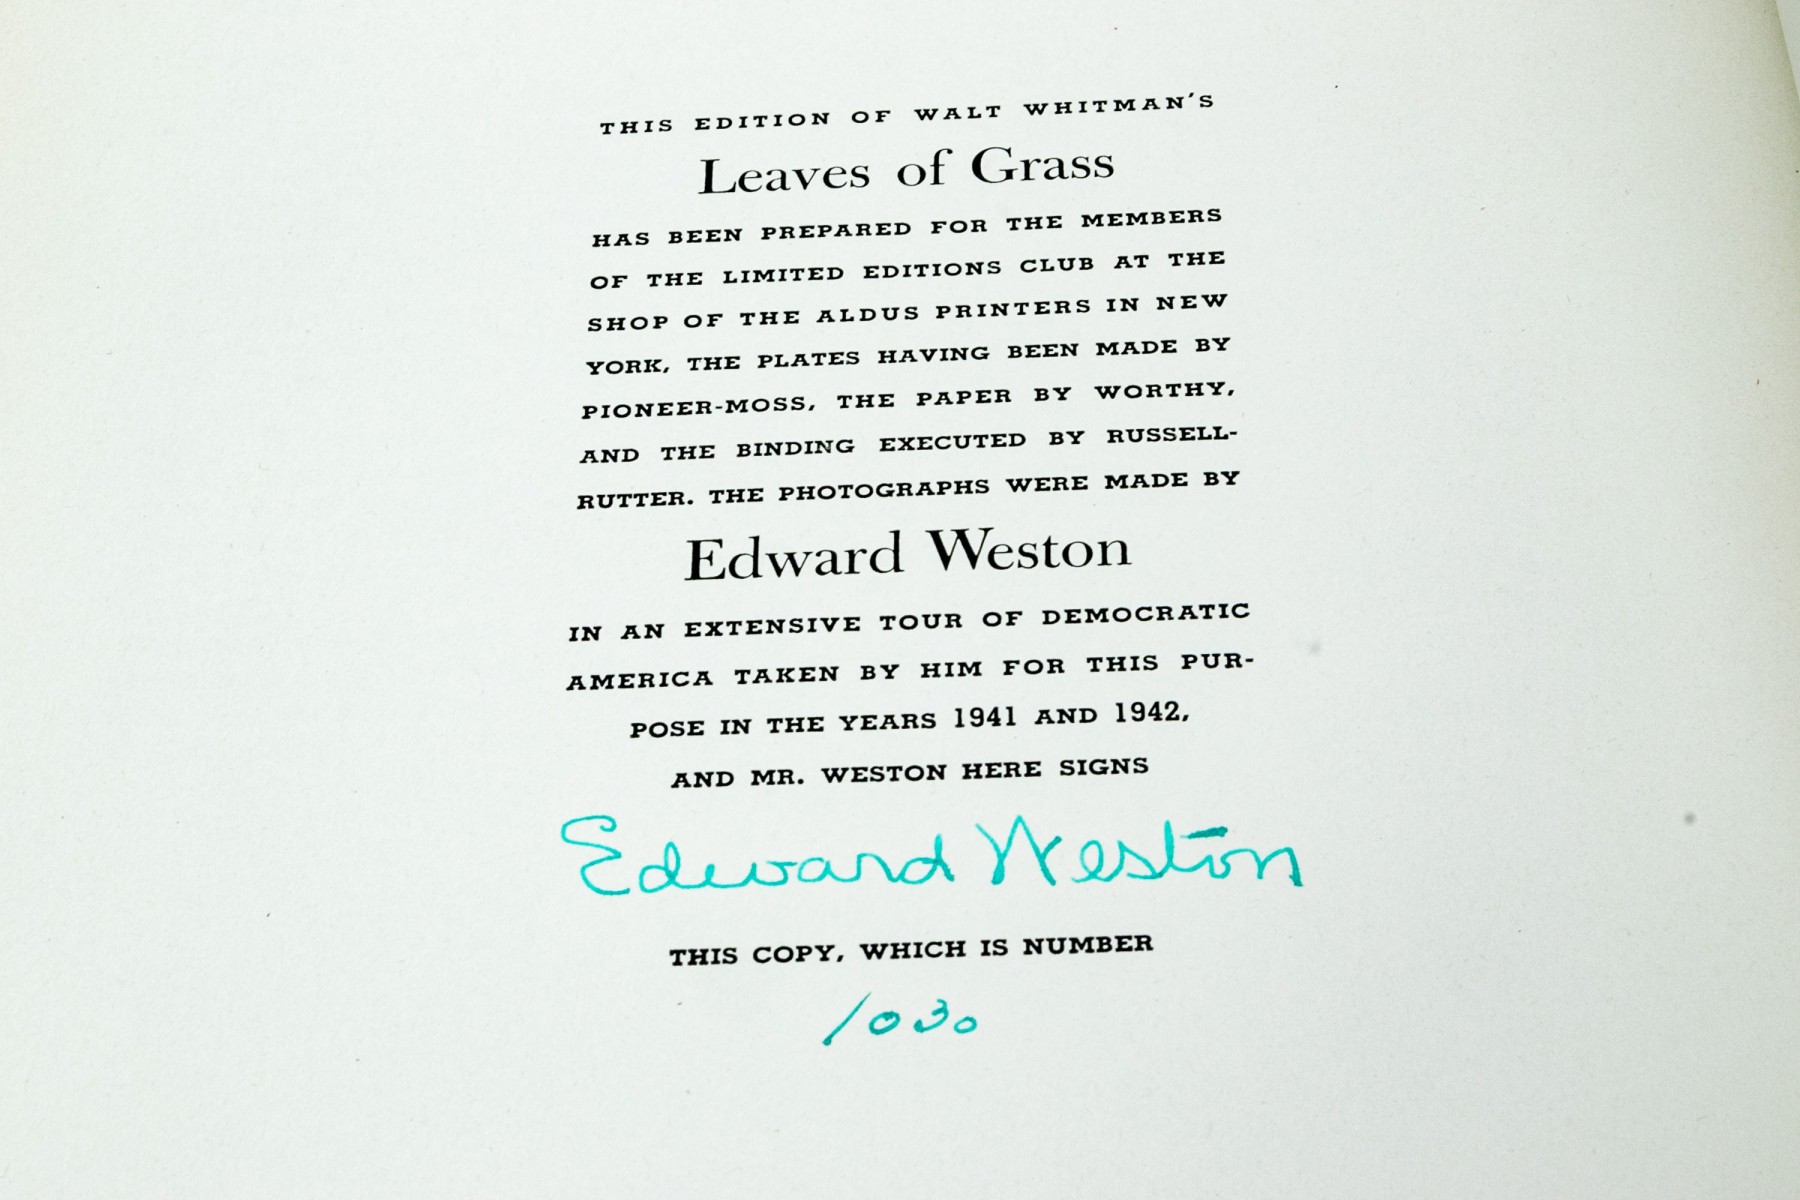 THIS EDITION OF WALT WHITMAN'S
Leaves of Grass
HAS BEEN PREPARED FOR THE MEMBERS
OF THE LIMITED EDITIONS CLUB AT THE
SHOP OF THE ALDUS PRINTERS IN NEW
YORK, THE PLATES HAVING BEEN MADE BY
PIONEER-MOSS, THE PAPER BY WORTHY,
AND THE BINDING EXECUTED BY RUSSELL-
RUTTER. THE PHOTOGRAPHS WERE MADE BY
Edward Weston
IN AN EXTENSIVE TOUR OF DEMOCRATIC
AMERICA TAKEN BY HIM FOR THIS PUR-
POSE IN THE YEARS 1941 AND 1942,
AND MR. WESTON HERE SIGNS
Edward Weston
THIS COPY, WHICH IS NUMBER
1030